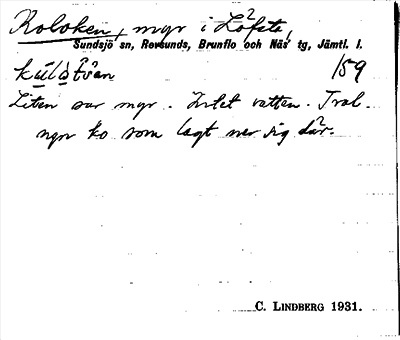 Koloken, myr i Löfsta,
Sundsjö sn, Revsunds, Brunflo och Näs tg, Jämtl. l.
159
Liten sur myr. Intet vatten. Trol.
ngn ko som lagt ner sig där.
C. LINDBERG 1931.